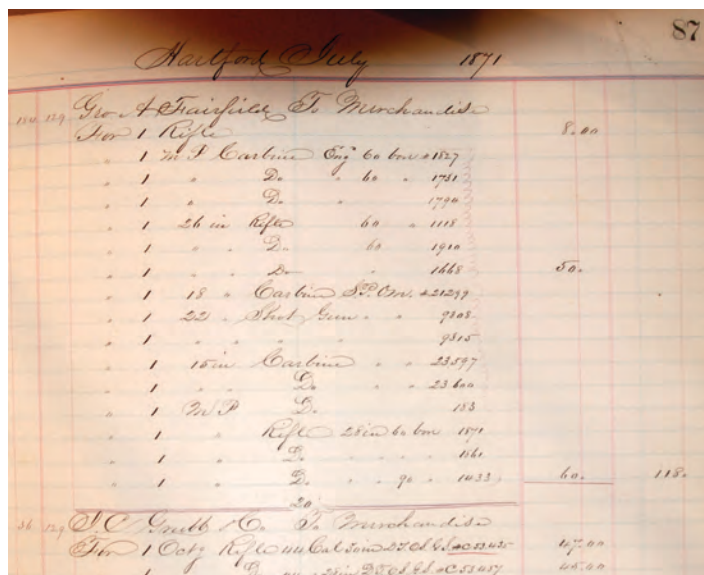 87
Hartford July 1871
129 Geo. A Fairfield To Merchandise
For 1 Rifle 8.00
" 1 M P Carbine Eng 60 bore # 1827
" 1 " Do " 60 " 1781
" 1 " Do " 1790
" 1 26 in Rifle 60 " 1118
" 1 " " Do 60 1910
" 1 " " Do " 1668 50.
" 1 18 " Carbine S.P. Om. # 21299
" 1 22 " Shot Gun " " 9308
" 1 " " " " 9315
" 1 15 in Carbine " " 23597
" 1 Do " " 23600
" 1 M P Do 183
" 1 " Rifle 28 in 60 bore 1871
" 1 " Do " " 1161
" 1 " Do " " 90 " 1433 60. 118.
20
36 129 & Co. To Merchandise
For 1 Octg Rifle 44 Cal #C 53435 47.00
1 D. 44 " 28 in #C 53457 45.00